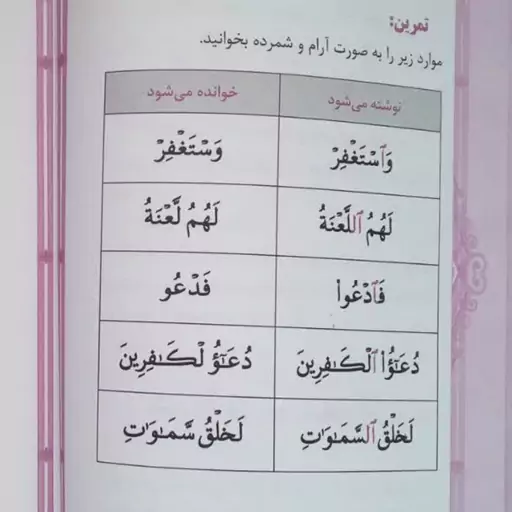 تمرین:
موارد زیر را به صورت آرام و شمرده بخوانید.
نوشته می‌شود خوانده می‌شود
وَٱسْتَغْفِرْ وَسْتَغْفِرْ
لَهُمُ ٱللَّعْنَةُ لَهُمُ لَّعْنَةُ
فَٱدْعُوا۟ فَدْعُو
دُعَـٰٓؤُا۟ ٱلْكَـٰفِرِينَ دُعَـٰٓؤُ لْكَـٰفِرِينَ
لَخَلْقُ ٱلسَّمَـٰوَٰتِ لَخَلْقُ سَّمَـٰوَٰتِ